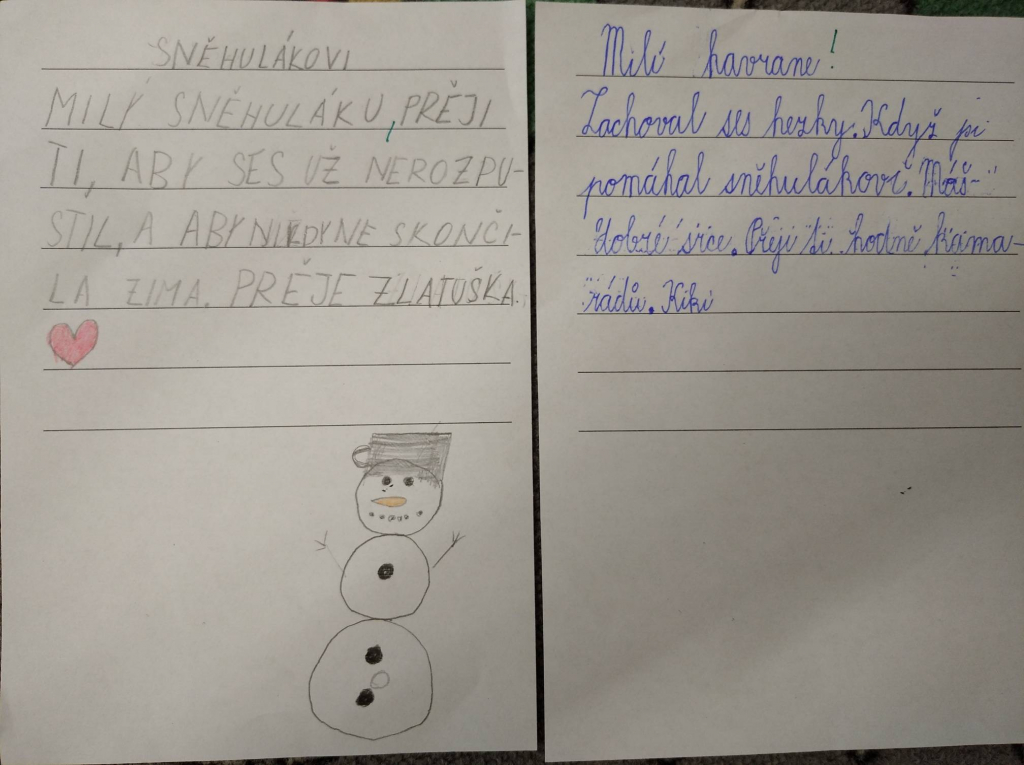 SNĚHULÁKOVI
MILÝ SNĚHULÁKU, PŘĚJI
TI, ABY SES UŽ NEROZPU-
STIL, A ABY NIKDY NE SKONČI-
LA ZIMA. PŘĚJE ZLATUŠKA.
Milí havrane!
Zachoval ses hezky. Když si
pomáhal sněhulákovi. Máš
dobré srce. Přeji ti hodně kama-
rádů. Kiki